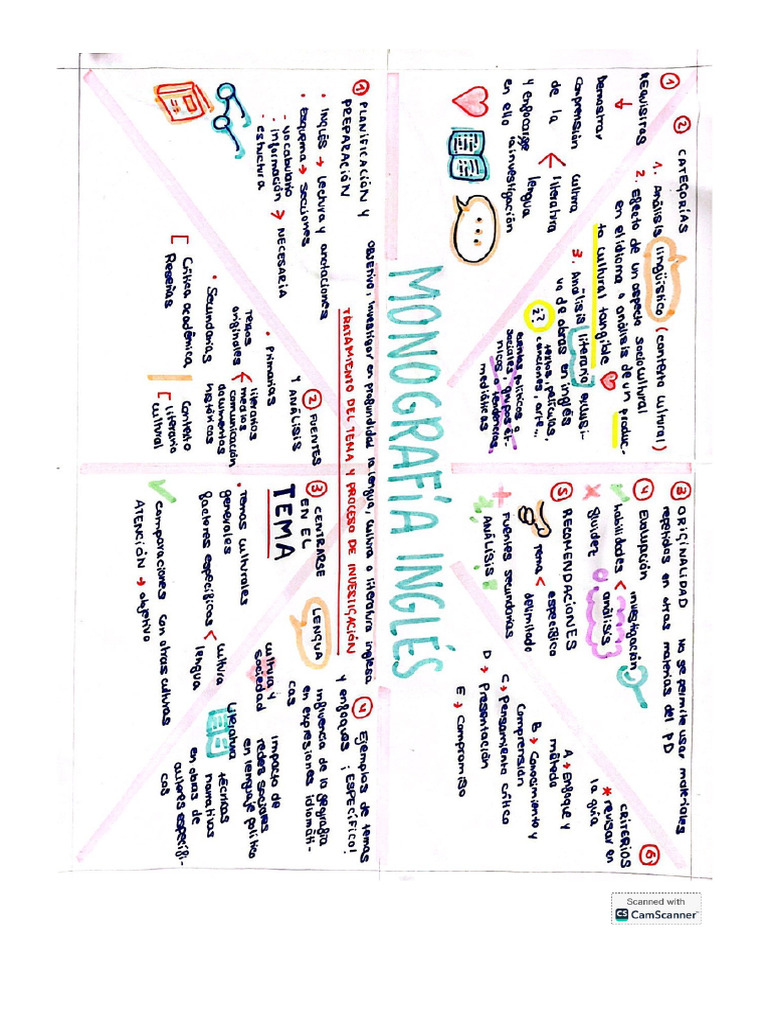 MONOGRAFÍA INGLÉS
① REQUISITOS
Demostrar
comprensión
de la
cultura
literatura
lengua
y enfocarse
en ello
la investigación
② CATEGORÍAS
1. Análisis lingüístico (contexto cultural)
2. Efecto de un aspecto sociocultural
en el idioma o análisis de un produc-
to cultural tangible
3. Análisis literario exlusi-
vo de obras en inglés
¿?
textos, películas,
canciones, arte...
eventos políticos o
sociales, grupos ét-
nicos o tendencias,
mediáticas
③ ORIGINALIDAD no se permite usar materiales
repetidos en otras materias del PD
④ Evaluación
habilidades < investigación
análisis
fluidez
⑤ RECOMENDACIONES
Tema < específico
delimitado
Fuentes secundarias
ANÁLISIS
⑥
CRITERIOS
* revisar en
la guía
A → Enfoque y
método
B → Conocimiento y
Comprensión
C → Pensamiento crítico
D → Presentación
E → Compromiso
Objetivo: Investigar en profundidad la lengua, cultura o literatura inglesa
TRATAMIENTO DEL TEMA Y PROCESO DE INVESTIGACIÓN
① PLANIFICACIÓN Y
PREPARACIÓN
• Inglés → Lectura y anotaciones
• Esquema → Secciones
- vocabulario
- información → NECESARIA
- estructura
② FUENTES
Y ANÁLISIS
• Primarias
Textos
originales
literarios
medios
comunicación
documentos
históricos
• Secundarias
[ Crítica académica
Reseñas
[ Contexto
literario
cultural
③ CENTRARSE
EN EL
TEMA
• Temas culturales
generales
factores específicos < cultura
lengua
✓ comparaciones con otras culturas
ATENCIÓN → objetivo
④ Ejemplos de temas
y enfoques ¡ESPECÍFICO!
LENGUA
influencia de la geografía
en expresiones idiomáti-
cas
cultura y
sociedad
impacto de
redes sociales
en lenguaje político
Literatura
técnicas
narrativas
en obras de
autores específi-
cos
Scanned with
CS CamScanner